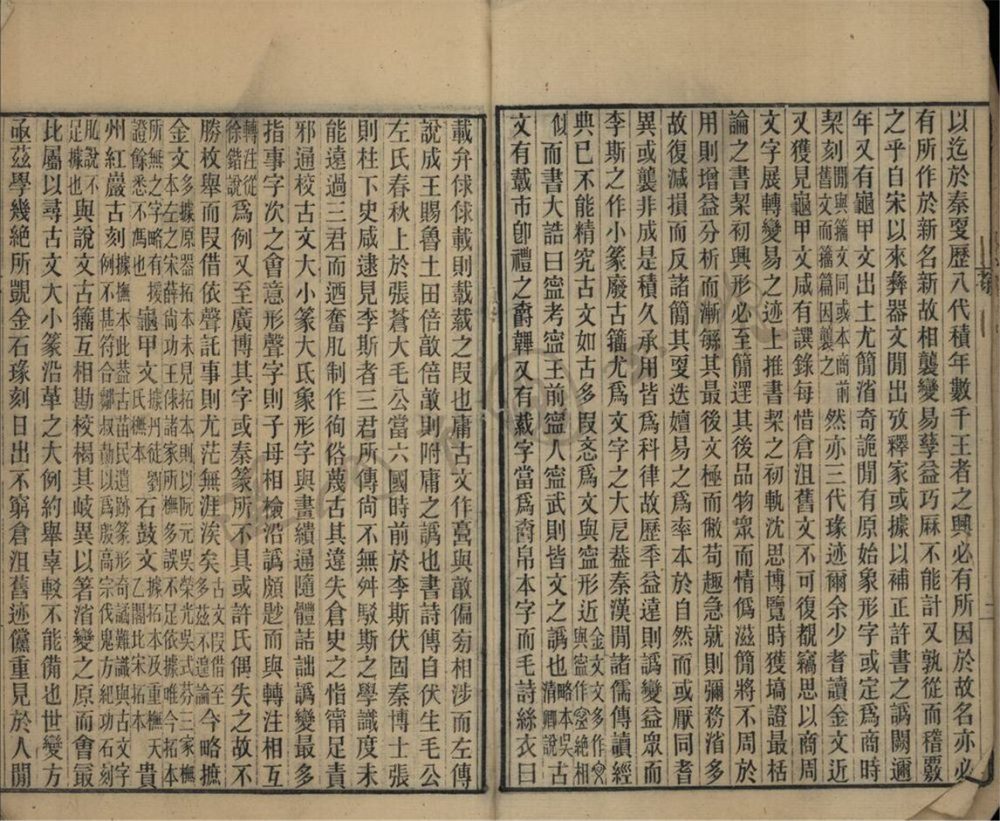 以迄於秦夐歷八代積年數千王者之興必有所因於故名亦必
有所作於新名新故相襲變易孳益巧厤不能計又孰從而稽覈
之乎自宋以來彝器文閒出攷釋家或據以補正許書之譌闕邇
年又有龜甲文出土尤簡渻奇詭閒有原始象形字或定爲商時
契刻閒與籀文同或本商前舊文而籀篇因襲之然亦三代瑑迹爾余少耆讀金文近
又獲見龜甲文咸有譔錄每惜倉沮舊文不可復覩竊思以商周
文字展轉變易之迹上推書契之初軌沈思博覽時獲塙證最栝
論之書契初興形必至簡遝其後品物眾而情僞滋簡將不周於
用則增益分析而漸緐其最後文極而敝苟趣急就則彌務渻多
故復減損而反諸簡其夐迭嬗易之爲率本於自然而或厭同耆
異或襲非成是積久承用皆爲科律故歷季益遠則譌變益眾而
李斯之作小篆廢古籀尤爲文字之大戹葢秦漢閒諸儒傳讀經
典已不能精究古文如古多叚忞爲文與寍形近金文多作與寍作絶相
似而書大誥曰寍考寍王前寍人寍武則皆文之譌也略本吳清卿說古
文有韍市卽禮之爵韠又有韍字當爲爵帛本字而毛詩絲衣曰
載弁俅俅載則韍韍之叚也庸古文作𩫖與敵偏㫄相涉而左傳
說成王賜魯土田倍敵倍敵則附庸之譌也書詩傳自伏生毛公
左氏春秋上於張蒼大毛公當六國時前於李斯伏固秦博士張
則柱下史咸逮見李斯者三君所傳尙不無舛駁斯之學識度未
能遠過三君而迺奮肊制作徇俗蔑古其違失倉史之恉甯足責
邪通校古文大小篆大氐象形字與書繢通隨體詰詘譌變最多
指事字次之會意形聲字則子母相檢沿譌頗尟而與轉注相互
轉注從徐鍇說爲例又至廣博其字或秦篆所不具或許氏偶失之故不
勝枚舉而叚借依聲託事則尤茫無涯涘矣古文叚借至多茲不遑論今略摭
金文多據原器拓本未見拓本則以阮元吳榮光吳式芬三家橅本左之宋薛尙功王俅諸家所橅多誤不足依據唯今拓本所無之字略有援證餘悉不馮也龜甲文據丹徒劉氏橅本石鼓文據拓本及重橅天乙閣北宋拓本貴
州紅巖古刻據橅本此葢古苗民遺跡篆形奇譎難識與古文字例不甚符合鄒叔勣以爲殷高宗伐鬼方紀功石刻肊說不足據也與說文古籀互相勘校楬其岐異以箸渻變之原而會冣
比屬以尋古文大小篆沿革之大例約舉辜較不能備也世變方
亟茲學幾絶所覬金石瑑刻日出不窮倉沮舊迹儻重見於人閒